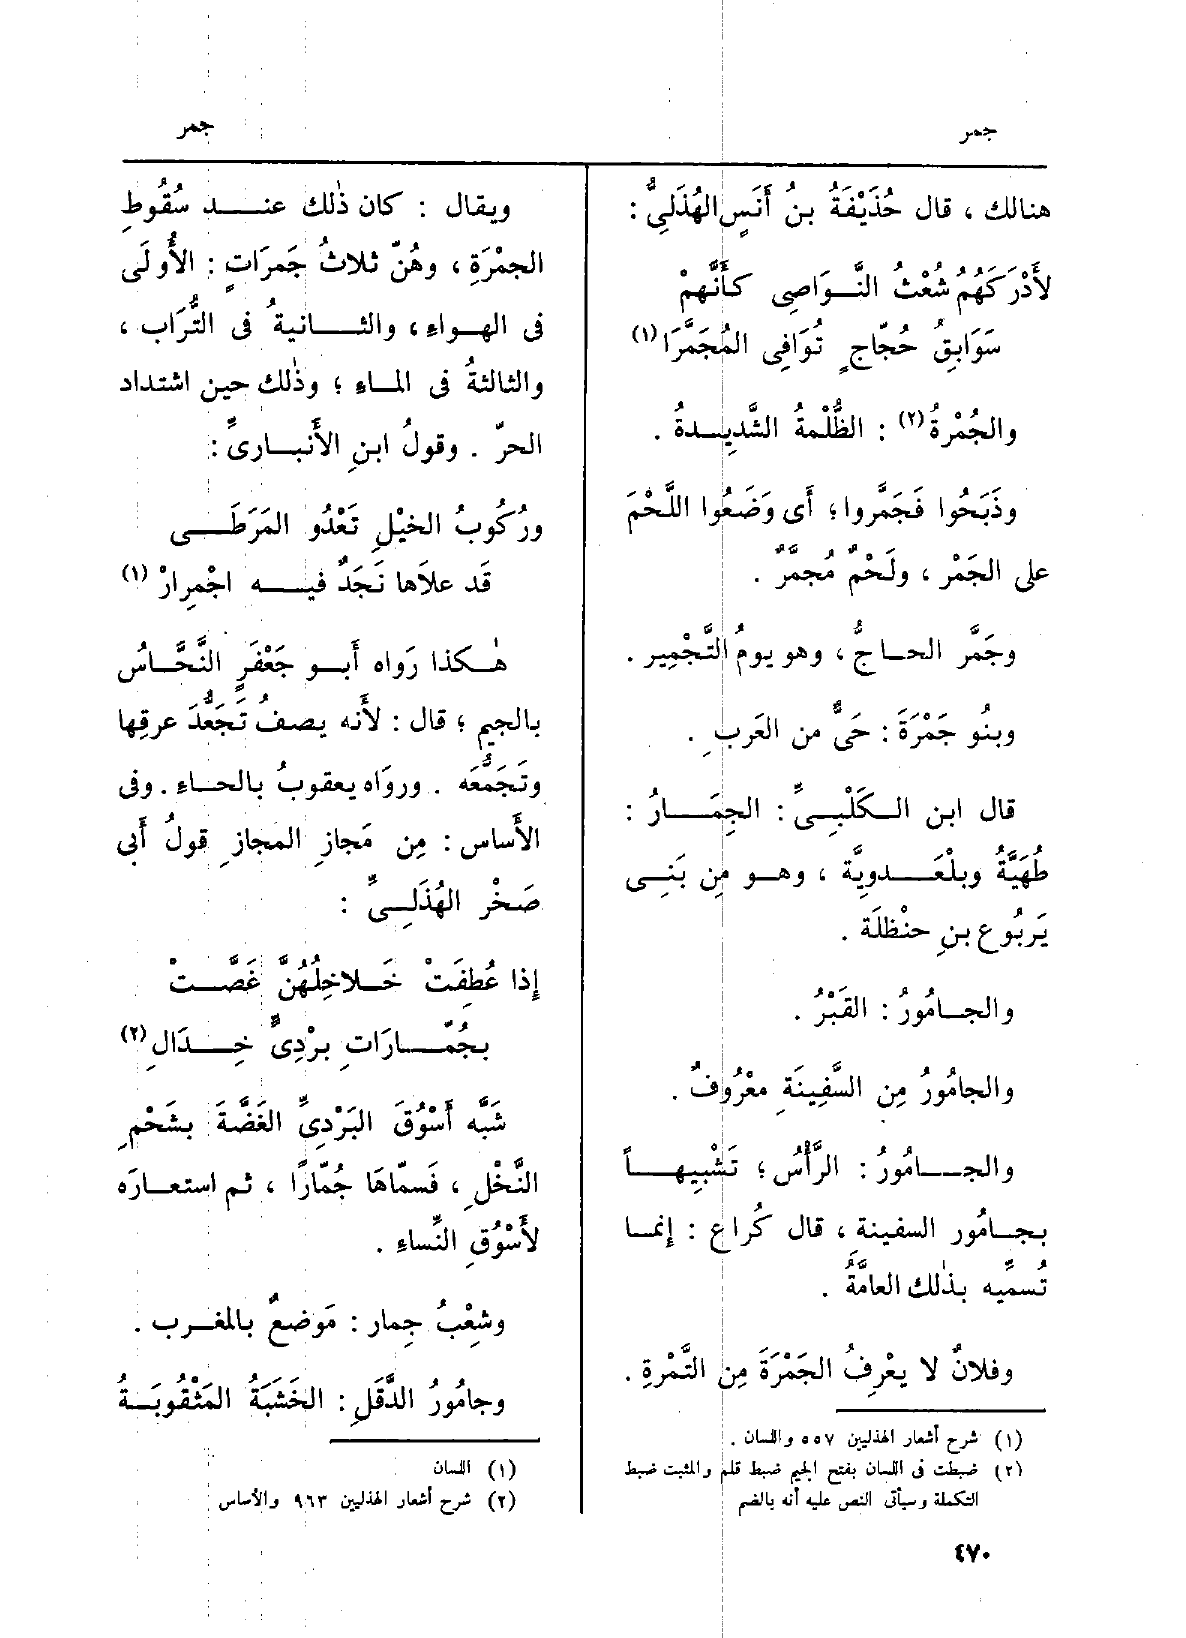 جمر
جمر
هنالك ، قال حُذَيْفَةُ بنُ أَنَسٍ الهُذَلِيُّ :
لأَدْرَكَهُم شُعْثُ النَّوَاصِى كأَنَّهمْ
سَوَابِقُ حُجّاجٍ تُوَافِى المُجَمَّرَا (١)
والجُمْرةُ (٢) : الظُّلْمةُ الشَّدِيدةُ .
وذَبَحُوا فَجَمَّروا؛ أَى وَضَعُوا اللَّحْمَ
على الجَمْرِ ، ولَحْمٌ مُجمَّرٌ .
وجَمَّر الحاجُّ ، وهو يومُ التَّجْمِيرِ .
وبنُو جَمْرَةَ : حَىٌّ من العَربِ .
قال ابن الكَلْبِىِّ : الجِمَارُ :
طُهَيَّةُ وبلْعَدوِيَّة ، وهو مِن بَنِى
يَربُوع بنِ حنْظلَة .
والجامُورُ : القَبْرُ .
والجامُورُ مِن السَّفِينَةِ معْرُوفٌ .
والجامُورُ : الرَّأْسُ ؛ تَشْبِيهاً
بجامُور السفينة ، قال كُراع : إِنما
تُسمِّيه بذٰلك العامَّةُ .
وفلانٌ لا يعْرِفُ الجَمْرَةَ مِن التَّمْرةِ .
(١) شرح أشعار الهذليين ٥٥٧ واللسان .
(٢) ضبطت فى اللسان بفتح الجيم ضبط قلم والمثبت ضبط
التكملة وسيأتى النص عليه أنه بالضم
ويقال : كان ذٰلك عند سُقُوطِ
الجمْرَةِ ، وهُنّ ثلاثُ جَمرَاتٍ : الأُولَى
فى الهواءِ ، والثانيةُ فى التُّرَاب ،
والثالثةُ فى الماءِ ؛ وذٰلك حين اشتداد
الحرّ . وقولُ ابنِ الأَنبارىِّ :
ورُكُوبُ الخيْلِ تَعْدُو المَرَطَى
قَد علاَها نَجَدٌ فيه اجْمِرارْ (١)
هٰكذا رَواه أَبو جَعْفَرٍ النَّحَّاسُ
بالجيم ؛ قال : لأَنه يصفُ تَجَعُّدَ عرقِها
وتَجَمُّعَه . ورواه يعقوبُ بالحاءِ . وفى
الأَساس : مِن مَجازِ المجازِ قولُ أَبى
صَخْر الهُذَلِىِّ :
إِذا عُطِفَتْ خَلاخِلُهُنَّ غَصَّتْ
بجُمّارَاتِ برْدِىٍّ خِدَالِ (٢)
شَبَّه أَسْوُقَ البَرْدِىِّ الغَضَّةَ بشَحْمِ
النَّخْلِ ، فَسمّاهَا جُمّارًا ، ثم استعارَه
لأَسْوُقِ النِّساءِ .
وشِعْبُ جِمار : مَوضعٌ بالمغرب .
وجامُورُ الدَّقَلِ : الخَشَبَةُ المَثْقُوبَةُ
(١) اللسان
(٢) شرح أشعار الهذليين ٩٦٣ والأساس
٤٧٠